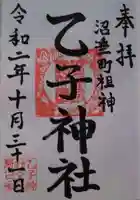 奉拝
沼津町祖神
乙子神社
令和二年十月三十一日